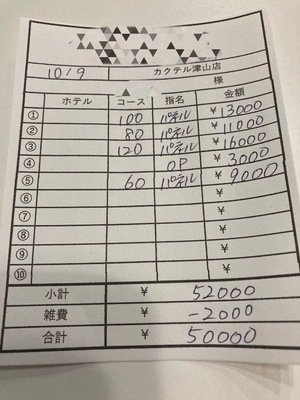 10/9 カクテル津山店
様
ホテル コース 指名 金額
① 100 パネル ¥13000
② 80 パネル ¥11000
③ 120 パネル ¥16000
④ OP ¥3000
⑤ 60 パネル ¥9000
⑥ ¥
⑦ ¥
⑧ ¥
⑨ ¥
⑩ ¥
小計 ¥ 52000
雑費 ¥ -2000
合計 ¥ 50000